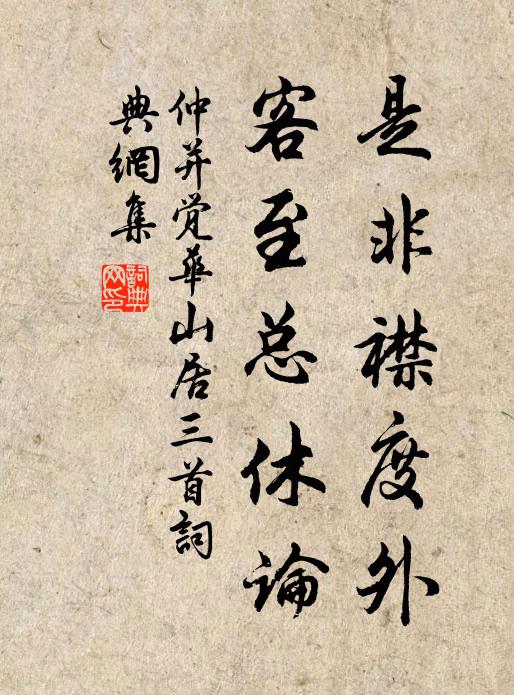 是非襟度外
客至总休论
仲并觉华山居三首詞
典網集
詞典網印